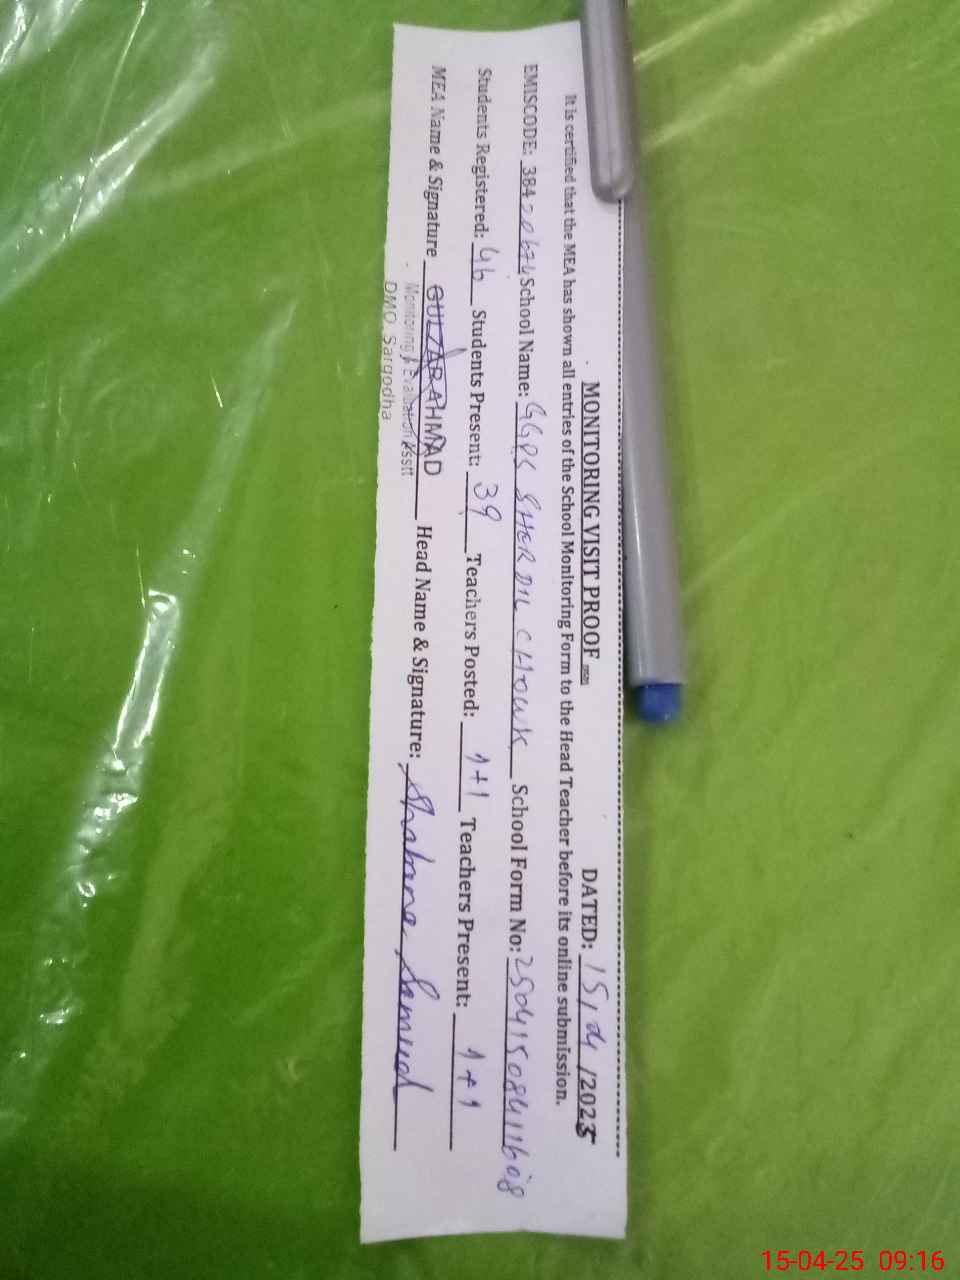 MONITORING VISIT PROOF DATED: 15/04/2025
It is certified that the MEA has shown all entries of the School Monitoring Form to the Head Teacher before its online submission.
EMISCODE: 38420674 School Name: GGPS SHER DIL CHOWK School Form No: 250415084111608
Students Registered: 46 Students Present: 39 Teachers Posted: 1+1 Teachers Present: 1+1
MEA Name & Signature GULZAR AHMAD Head Name & Signature: Shabana
Monitoring & Evaluation Asstt
DMO, Sargodha
15-04-25 09:16